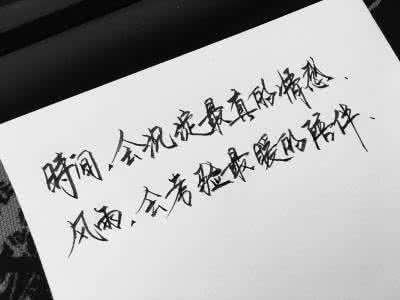 時间,会沉淀最真的情愁、
风雨,会考验最暖的陪伴、